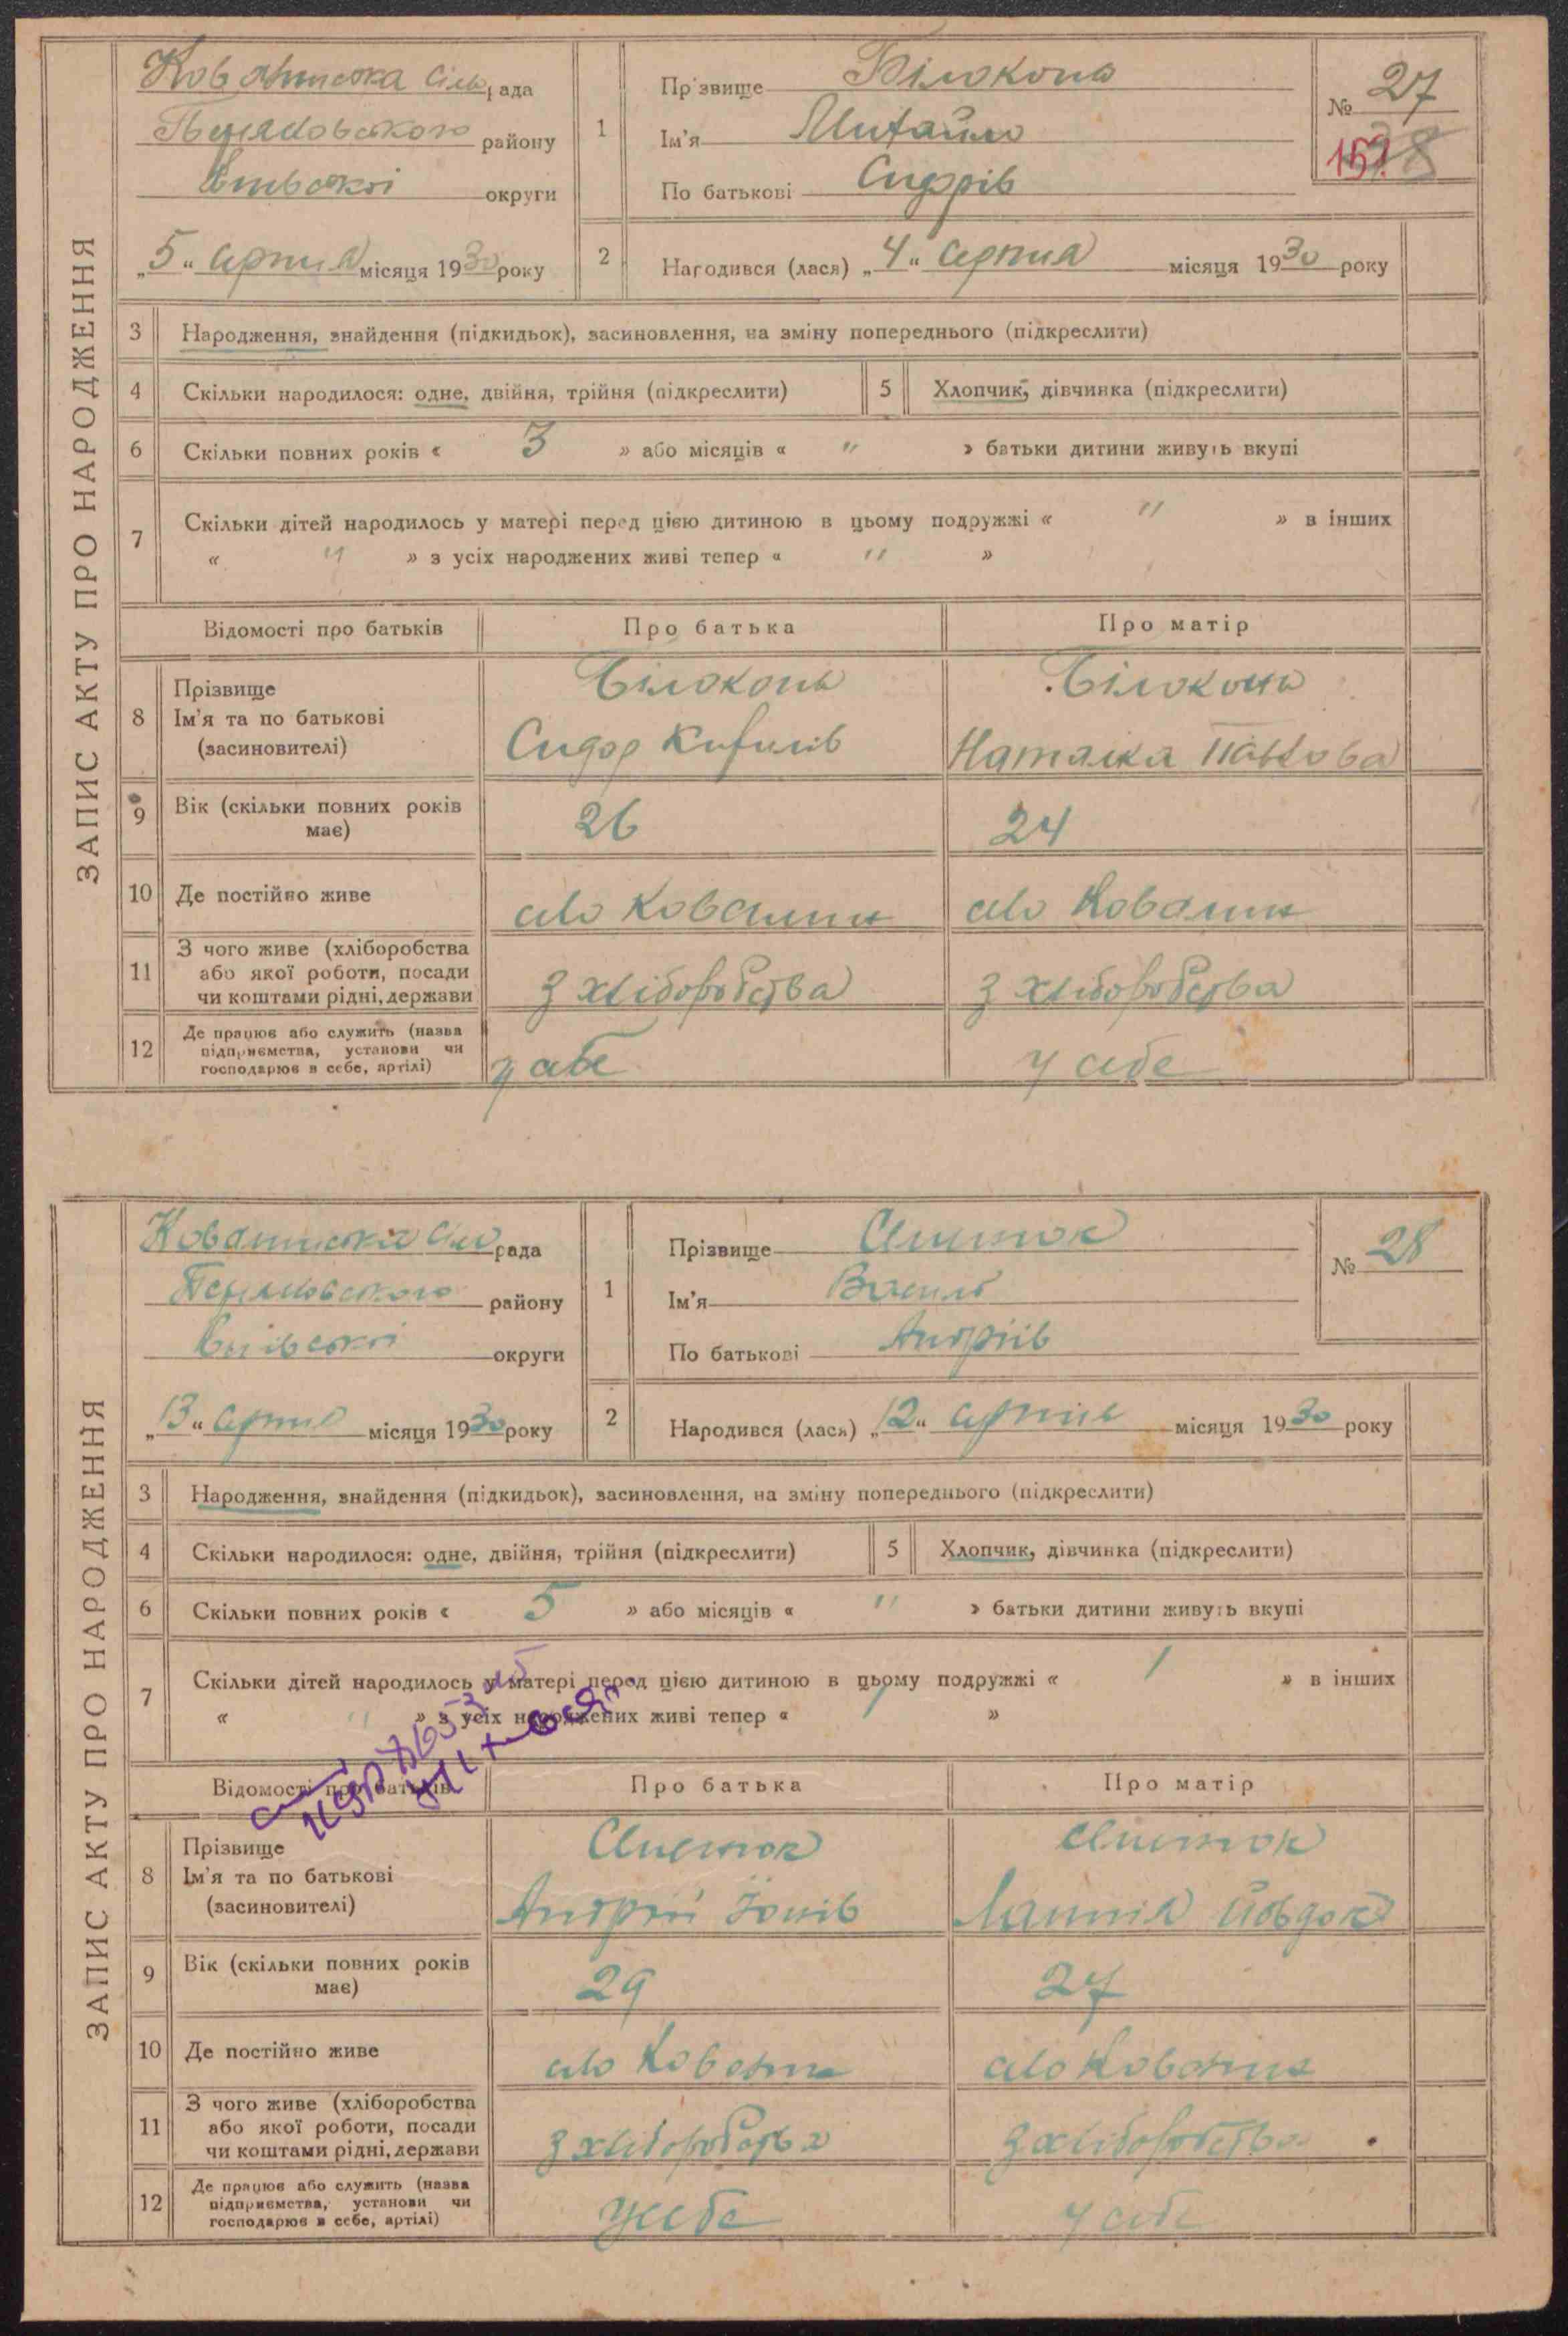 ЗАПИС АКТУ ПРО НАРОДЖЕННЯ
Ковалинська сільрада
району
округи
„5“ серпня місяця 1930 року
1
Прізвище Білоконь
Ім'я Михайло
По батькові Сидорів
№ 27
2
Народився (лася) „4“ серпня місяця 1930 року
3 Народження, знайдення (підкидьок), засиновлення, на зміну попереднього (підкреслити)
4 Скільки народилося: одне, двійня, трійня (підкреслити)
5 Хлопчик, дівчинка (підкреслити)
6 Скільки повних років « 3 » або місяців « " » батьки дитини живуть вкупі
7 Скільки дітей народилось у матері перед цією дитиною в цьому подружжі « " » в інших
« " » з усіх народжених живі тепер « " »
Відомості про батьків Про батька Про матір
8 Прізвище
Ім'я та по батькові
(засиновителі)
Білоконь
Сидор Кирилів
Білоконь
Наталка
9 Вік (скільки повних років
має)
26 24
10 Де постійно живе
село Ковалин село Ковалин
11 З чого живе (хліборобства
або якої роботи, посади
чи коштами рідні, держави
з хліборобства з хліборобства
12 Де працює або служить (назва
підприємства, установи чи
господарює в себе, артілі)
у себе у себе
ЗАПИС АКТУ ПРО НАРОДЖЕННЯ
Ковалинська сільрада
району
округи
„13“ серпня місяця 1930 року
1
Прізвище
Ім'я Василь
По батькові Андріїв
№ 28
2
Народився (лася) „12“ серпня місяця 1930 року
3 Народження, знайдення (підкидьок), засиновлення, на зміну попереднього (підкреслити)
4 Скільки народилося: одне, двійня, трійня (підкреслити)
5 Хлопчик, дівчинка (підкреслити)
6 Скільки повних років « 5 » або місяців « " » батьки дитини живуть вкупі
7 Скільки дітей народилось у матері перед цією дитиною в цьому подружжі « 1 » в інших
« " » з усіх народжених живі тепер « 1 »
Відомості про батьків Про батька Про матір
8 Прізвище
Ім'я та по батькові
(засиновителі)
Андрій
9 Вік (скільки повних років
має)
29 27
10 Де постійно живе
село Ковалин село Ковалин
11 З чого живе (хліборобства
або якої роботи, посади
чи коштами рідні, держави
з хліборобства з хліборобства
12 Де працює або служить (назва
підприємства, установи чи
господарює в себе, артілі)
у себе у себе